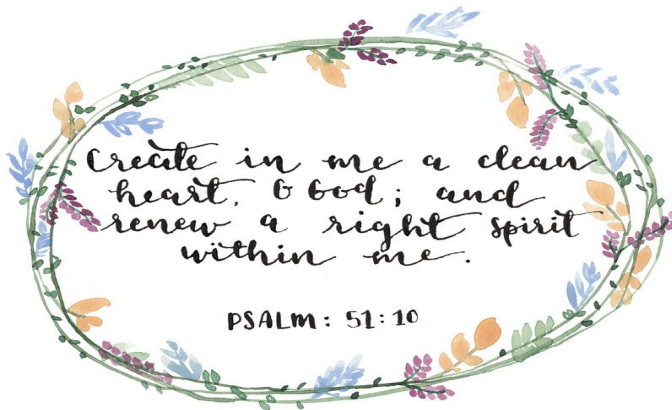 Create in me a clean
heart, O God; and
renew a right spirit
within me.
PSALM: 51:10